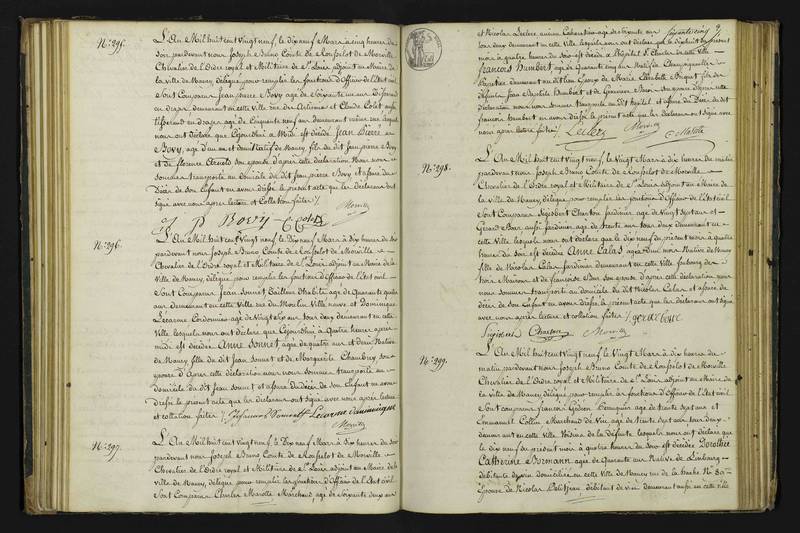 N.º 295.
L'An Mil huit cent Vingt neuf, le dix neuf Mars à cinq heures du
soir pardevant nous Joseph Bruno Comte de Rousselot de Morville
Chevalier de l'Ordre royal et Militaire de St Louis adjoint au Maire de
la ville de Nancy, délégué pour remplir les fonctions d'Officier de l'état civil
Sont Comparus Jean pierre Bovy âgé de Soixante
en drager demeurant en cette Ville rue des Artisans et Claude Colot aussi
âgé de Cinquante neuf ans demeurant même rue lesquels
nous ont déclaré que Cejourd'hui à Midi est décédé Jean Pierre
Bovy, âgé d'un an et demi natif de Nancy, fils du dit Jean pierre Bovy
et de florence son épouse d'après cette déclaration Nous nous
sommes transporté au domicile du dit Jean pierre Bovy et assuré du
Décès de son Enfant en avons dressé le présent acte que les déclarans ont
signé avec nous après lecture et Collation faites ./.
Morville
J P Bovy C Colot
N.º 296.
L'An Mil huit cent Vingt neuf le Dix neuf Mars à Dix heures du soir
pardevant nous Joseph Bruno Comte de Rousselot de Morville
Chevalier de l'Ordre royal et Militaire de St Louis adjoint au Maire de la
Ville de Nancy, délégué pour remplir les fonctions d'Officier de l'état civil
Sont Comparus Jean Sonnet Tailleur d'habits âgé de Quarante quatre
ans demeurant en cette Ville rue du Moulin Ville neuve et Dominique
Lecarme Cordonnier âgé de Vingt six ans tous deux demeurant en cette
Ville, lesquels nous ont déclaré que Cejourd'hui à Quatre heures après
midi est décédée Anne Sonnet âgée de quatre ans et demi Native
de Nancy fille du dit Jean Sonnet et de Marguerite Chaudrey son
épouse D'après cette déclaration nous nous sommes transporté au
domicile du dit Jean Sonnet et assuré du Décès de son Enfant en avons
Dressé le présent acte que les déclarans ont signé avec nous après lecture
et collation faites ./. Lecarme dominique
Morville
N.º 297.
L'An Mil huit cent Vingt neuf le Dix neuf Mars à Dix heures du soir
pardevant nous Joseph Bruno Comte de Rousselot de Morville
Chevalier de l'Ordre royal et Militaire de St Louis adjoint au Maire de la
ville de Nancy, délégué pour remplir les fonctions d'Officier de l'état Civil
Sont Comparus Charles Marotte Marchand, âgé de Soixante deux ans
et Nicolas Leclerc ancien Cabaretier âgé de Soixante cinq
tous deux demeurant en cette Ville lesquels nous ont déclaré que le dix huit du présent
mois à quatre heures du soir est décédé à l'hôpital St Charles de cette Ville
françois Humbert âgé de Quarante cinq ans Natif de Champigneulle
Papetier demeurant au dit lieu Epoux de Marie Elisabeth
défunts Jean Baptiste Humbert et de Genevieve d'après cette
déclaration nous nous sommes transporté au dit hôpital et assuré du Décès du dit
françois Humbert en avons dressé le présent acte que les déclarans ont signé
avec nous après lecture faites ./. Leclerc Morville
C Marotte
N.º 298.
L'An Mil huit cent Vingt neuf, le Vingt Mars à dix heures du matin
pardevant nous Joseph Bruno Comte de Rousselot de Morville
Chevalier de l'Ordre royal et Militaire de St Louis Adjoint au Maire de
la Ville de Nancy, délégué pour remplir les fonctions d'Officier de l'état civil
Sont Comparus Sigisbert Charton Jardinier âgé de Vingt sept ans et
Gérard Bour aussi Jardinier âgé de trente ans tous deux demeurant en
cette Ville lesquels nous ont déclaré que le Dix neuf du présent mois à quatre
heures du soir est décédée Anne Calas âgée d'un mois Native de Nancy
fille de Nicolas Calas Jardinier demeurant en cette Ville faubourg des
trois Maisons et de françoise son épouse d'après cette déclaration nous
nous sommes transporté au domicile du dit Nicolas Calas et assuré du
décès de son Enfant en avons dressé le présent acte que les déclarans ont signé
avec nous après lecture et collation faites ./. gerar bour
Sigisbert Charton Morville
N.º 299.
L'An Mil huit cent Vingt neuf le Vingt Mars à dix heures du
matin pardevant nous Joseph Bruno Comte de Rousselot de Morville
Chevalier de l'Ordre royal et Militaire de St Louis adjoint au Maire de
la ville de Nancy délégué pour remplir les fonctions d'Officier de l'état civil
Sont comparus françois Gédéon âgé de trente sept ans et
Emmanuel Collin Marchand de Vin âgé de trente sept ans tous deux
demeurant en cette Ville Voisins de la défunte lesquels nous ont déclaré que
le dix neuf du présent mois à quatre heures du soir est décédée Dorothée
Catherine Bormann âgée de Quarante ans Native de Limbourg
débitante de vin domiciliée en cette Ville de Nancy rue de la hache Nº 80
Epouse de Nicolas Petitjean débitant de vin demeurant aussi en cette ville